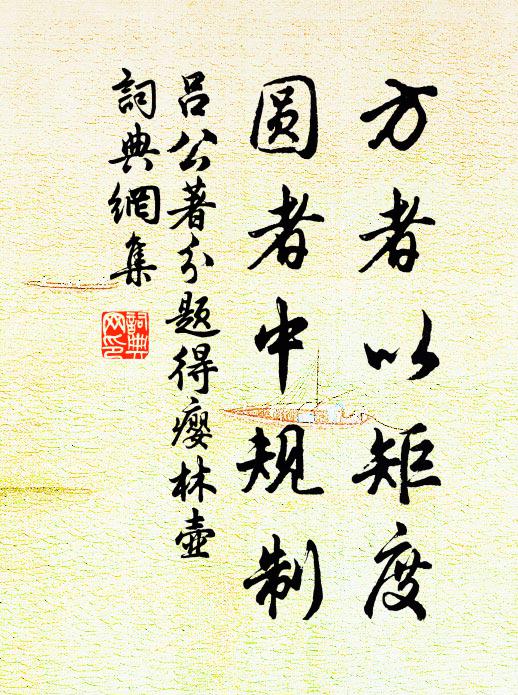 方者以矩度
圆者中規制
吕公著分题得癭林壺
詞典網集
詞典
网印